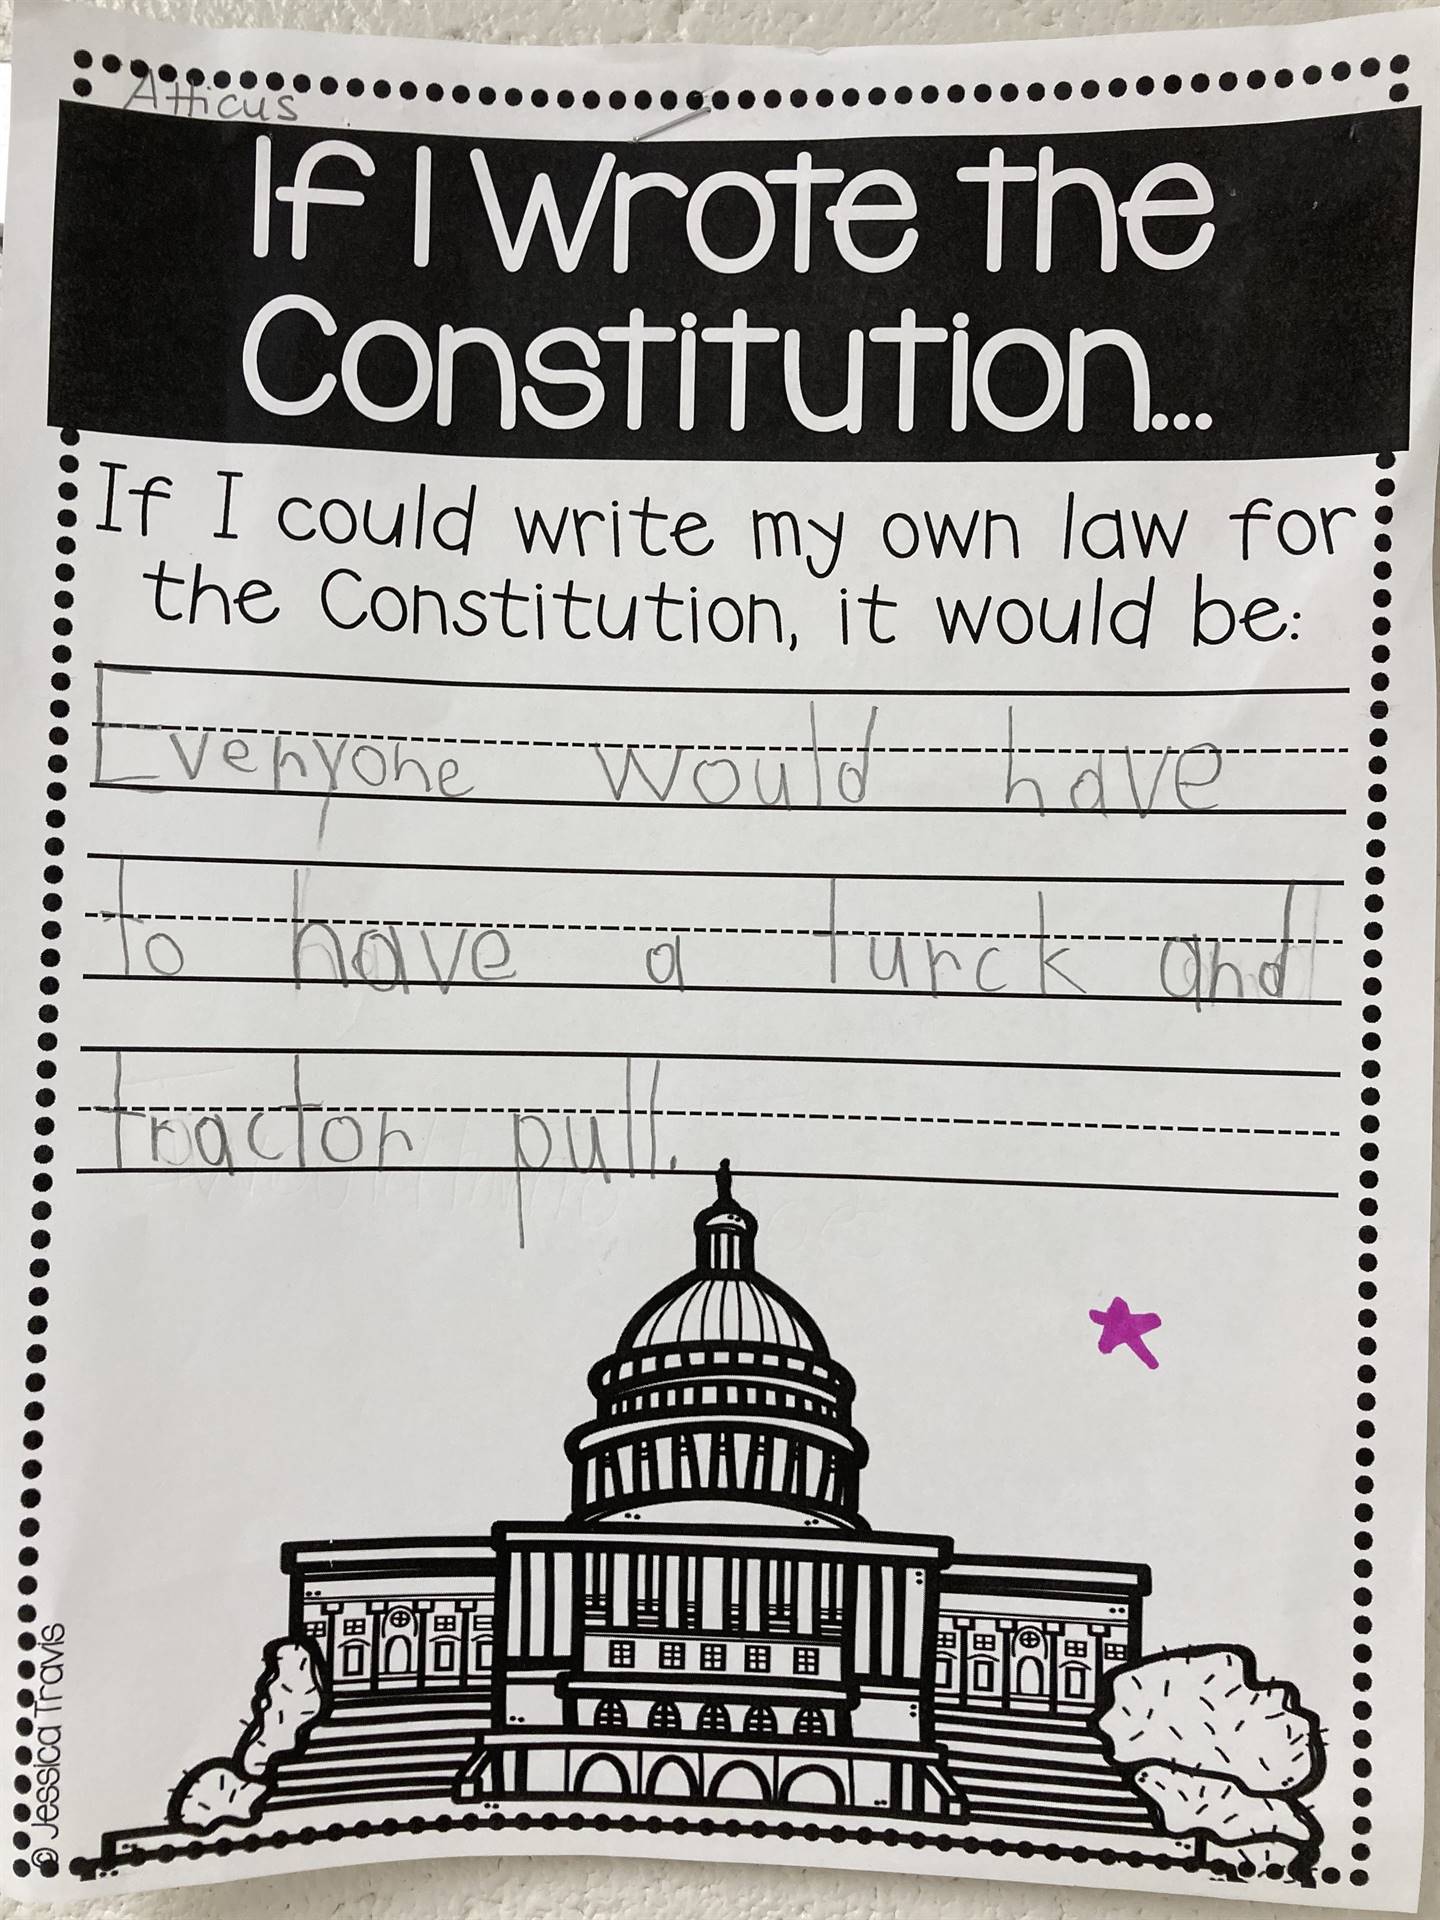 Atticus
If I Wrote the
Constitution...
If I could write my own law for
the Constitution, it would be:
Everyone would have
to have a turck and
tractor pull.
© Jessica Travis